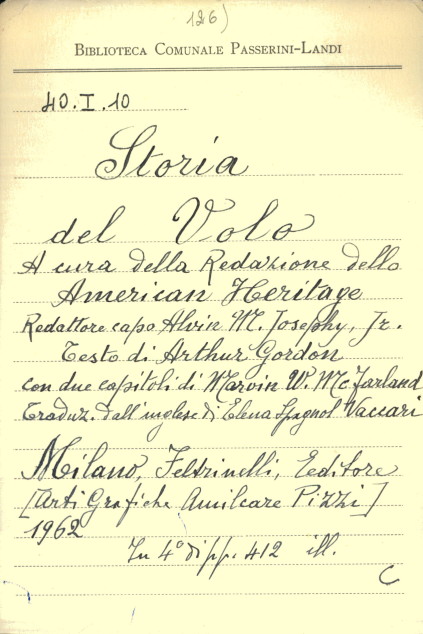 126)
BIBLIOTECA COMUNALE PASSERINI-LANDI
40.I.10
Storia
del Volo
A cura della Redazione dello
American Heritage
Redattore capo Alvin M. Josephy, Jr.
Testo di Arthur Gordon
con due capitoli di Marvin W. McFarland
Traduz. dall'inglese di Elena Spagnol Vaccari
Milano, Feltrinelli, Eeditore
[Arti Grafiche Amilcare Pizzi]
1962
In 4° di pp. 412 ill.
C